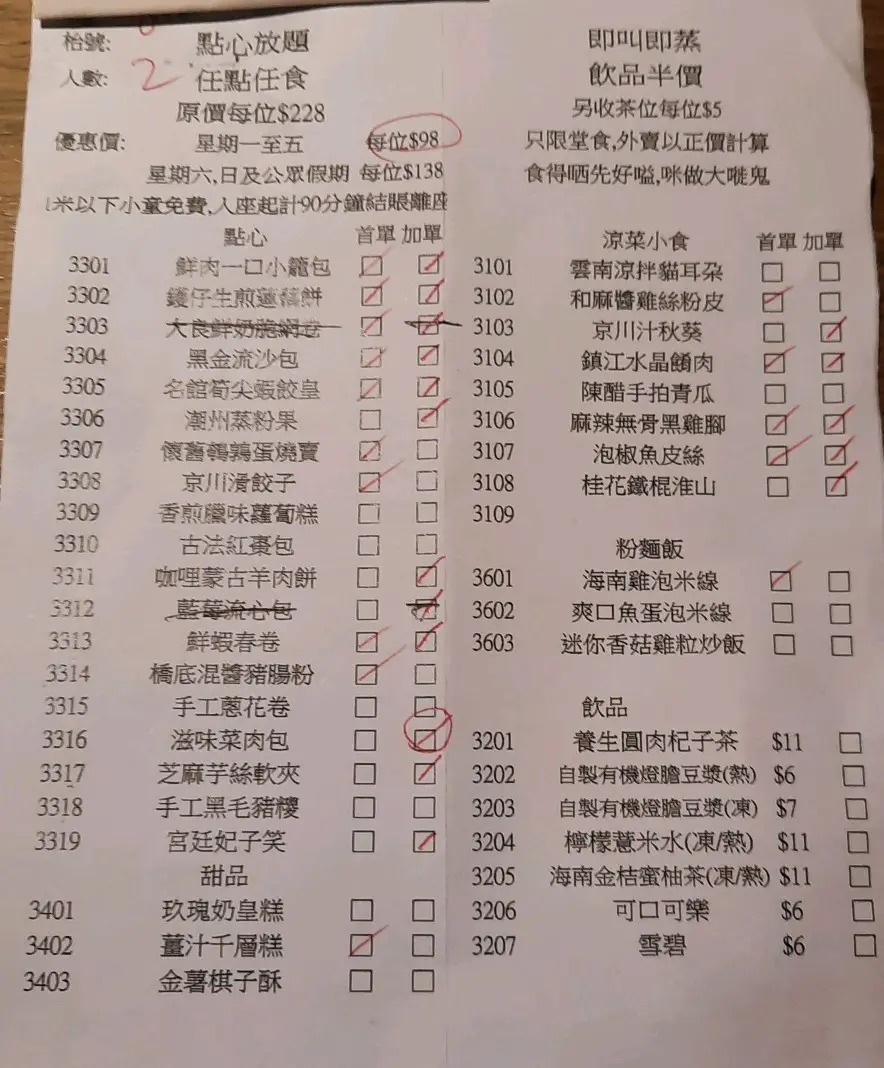 枱號:
點心放題
人數: 2
任點任食
原價每位$228
優惠價: 星期一至五 每位$98
星期六,日及公眾假期 每位$138
1米以下小童免費,入座起計90分鐘結賬離座
點心 首單 加單
3301 鮮肉一口小籠包
3302 鑊仔生煎蓮藕餅
3303 大良鮮奶脆網卷
3304 黑金流沙包
3305 名館筍尖蝦餃皇
3306 潮州蒸粉果
3307 懷舊鵪鶉蛋燒賣
3308 京川滑餃子
3309 香煎臘味蘿蔔糕
3310 古法紅棗包
3311 咖哩蒙古羊肉餅
3312 藍莓流心包
3313 鮮蝦春卷
3314 橋底混醬豬腸粉
3315 手工蔥花卷
3316 滋味菜肉包
3317 芝麻芋絲軟夾
3318 手工黑毛豬糭
3319 宮廷妃子笑
甜品
3401 玫瑰奶皇糕
3402 薑汁千層糕
3403 金薯棋子酥
即叫即蒸
飲品半價
另收茶位每位$5
只限堂食,外賣以正價計算
食得晒先好嗌,咪做大嘥鬼
涼菜小食 首單 加單
3101 雲南涼拌貓耳朶
3102 和麻醬雞絲粉皮
3103 京川汁秋葵
3104 鎮江水晶餚肉
3105 陳醋手拍青瓜
3106 麻辣無骨黑雞腳
3107 泡椒魚皮絲
3108 桂花鐵棍淮山
3109
粉麵飯
3601 海南雞泡米線
3602 爽口魚蛋泡米線
3603 迷你香菇雞粒炒飯
飲品
3201 養生圓肉杞子茶 $11
3202 自製有機燈膽豆漿(熱) $6
3203 自製有機燈膽豆漿(凍) $7
3204 檸檬薏米水(凍/熱) $11
3205 海南金桔蜜柚茶(凍/熱) $11
3206 可口可樂 $6
3207 雪碧 $6